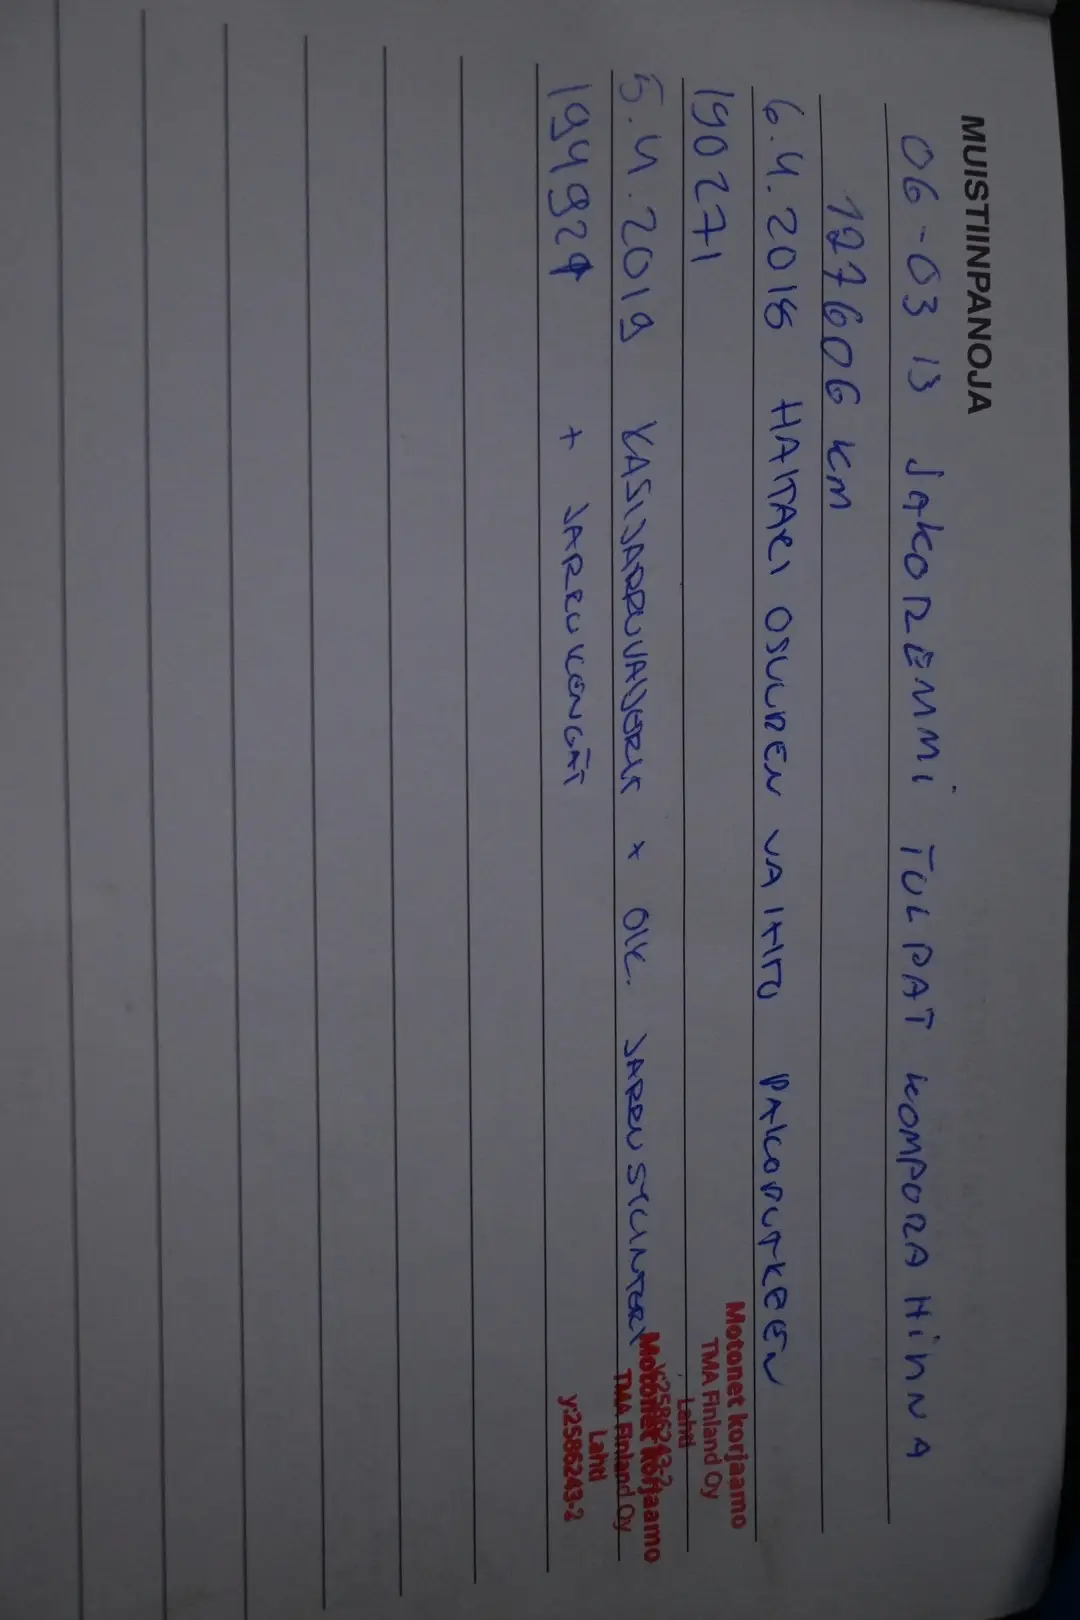 MUISTIINPANOJA
06-03 13 JAKOREMMI TULPAT KOMPURA HiNNA
127606 KM
6.4.2018 HAITARI OSUUDEN VAIHTO PAKOPUTKEEN
190271
Motonet korjaamo
TMA Finland Oy
Lahti
y:2586243-2
5.4.2019 KÄSIJARRUVAIJERIT x OIK. JARRUSYLINTERI
Motonet korjaamo
TMA Finland Oy
194921 + JARRUKENGÄT
Lahti
y:2586243-2